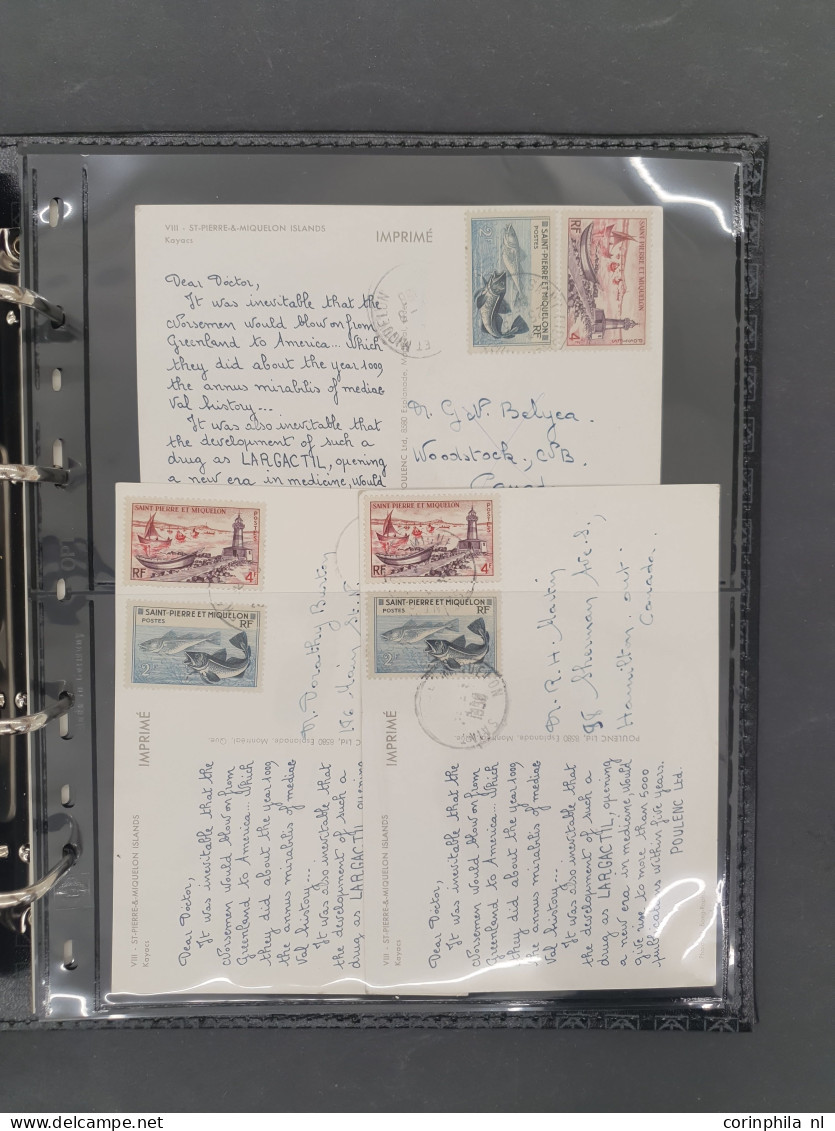 VIII - ST-PIERRE-&-MIQUELON ISLANDS
Kayacs
IMPRIMÉ
Dear Doctor,
It was inevitable that the
Norsemen would blow on from
Greenland to America... Which
they did about the year 1009
the annus mirabilis of mediae
val history...
It was also inevitable that
the development of such a
drug as LARGACTIL, opening
a new era in medicine, would
POULENC Ltd, 8580 Esplanade,
SAINT-PIERRE ET MIQUELON
POSTES
RF
SAINT PIERRE ET MIQUELON
RF
4F
ET MIQUELON
Dr. G. W. Belyea.
Woodstock, N.B.
SAINT PIERRE ET MIQUELON
RF
4F
SAINT-PIERRE ET MIQUELON
POSTES
RF
IMPRIMÉ
Ltd, 8580 Esplanade, Montréal, Qué.
VIII - ST-PIERRE-&-MIQUELON ISLANDS
Kayacs
Dear Doctor,
It was inevitable that the
Norsemen would blow on from
Greenland to America... Which
they did about the year 1009
the annus mirabilis of mediae
val history...
It was also inevitable that
the development of such a
drug as LARGACTIL, opening
SAINT PIERRE ET MIQUELON
RF
4F
SAINT-PIERRE ET MIQUELON
POSTES
RF
Dr. R. H. Martin
98 Sherman Ave. S.,
Hamilton, Ont.
Canada.
IMPRIMÉ
POULENC Ltd, 8580 Esplanade, Montréal,
VIII - ST-PIERRE-&-MIQUELON ISLANDS
Kayacs
Dear Doctor,
It was inevitable that the
Norsemen would blow on from
Greenland to America... Which
they did about the year 1009
the annus mirabilis of mediae
val history...
It was also inevitable that
the development of such a
drug as LARGACTIL, opening
a new era in medicine would
give rise to more than 6000
publications within five years.
POULENC Ltd.
corinphila.nl